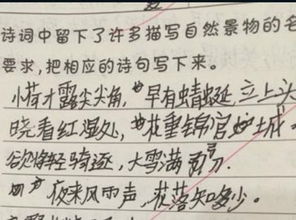 诗词中留下了许多描写自然景物的名
要求,把相应的诗句写下来。
小荷才露尖尖角,早有蜻蜓立上头
晓看红湿处,花重锦官城。
欲将轻骑逐,大雪满刀。
夜来风雨声,花落知多少。